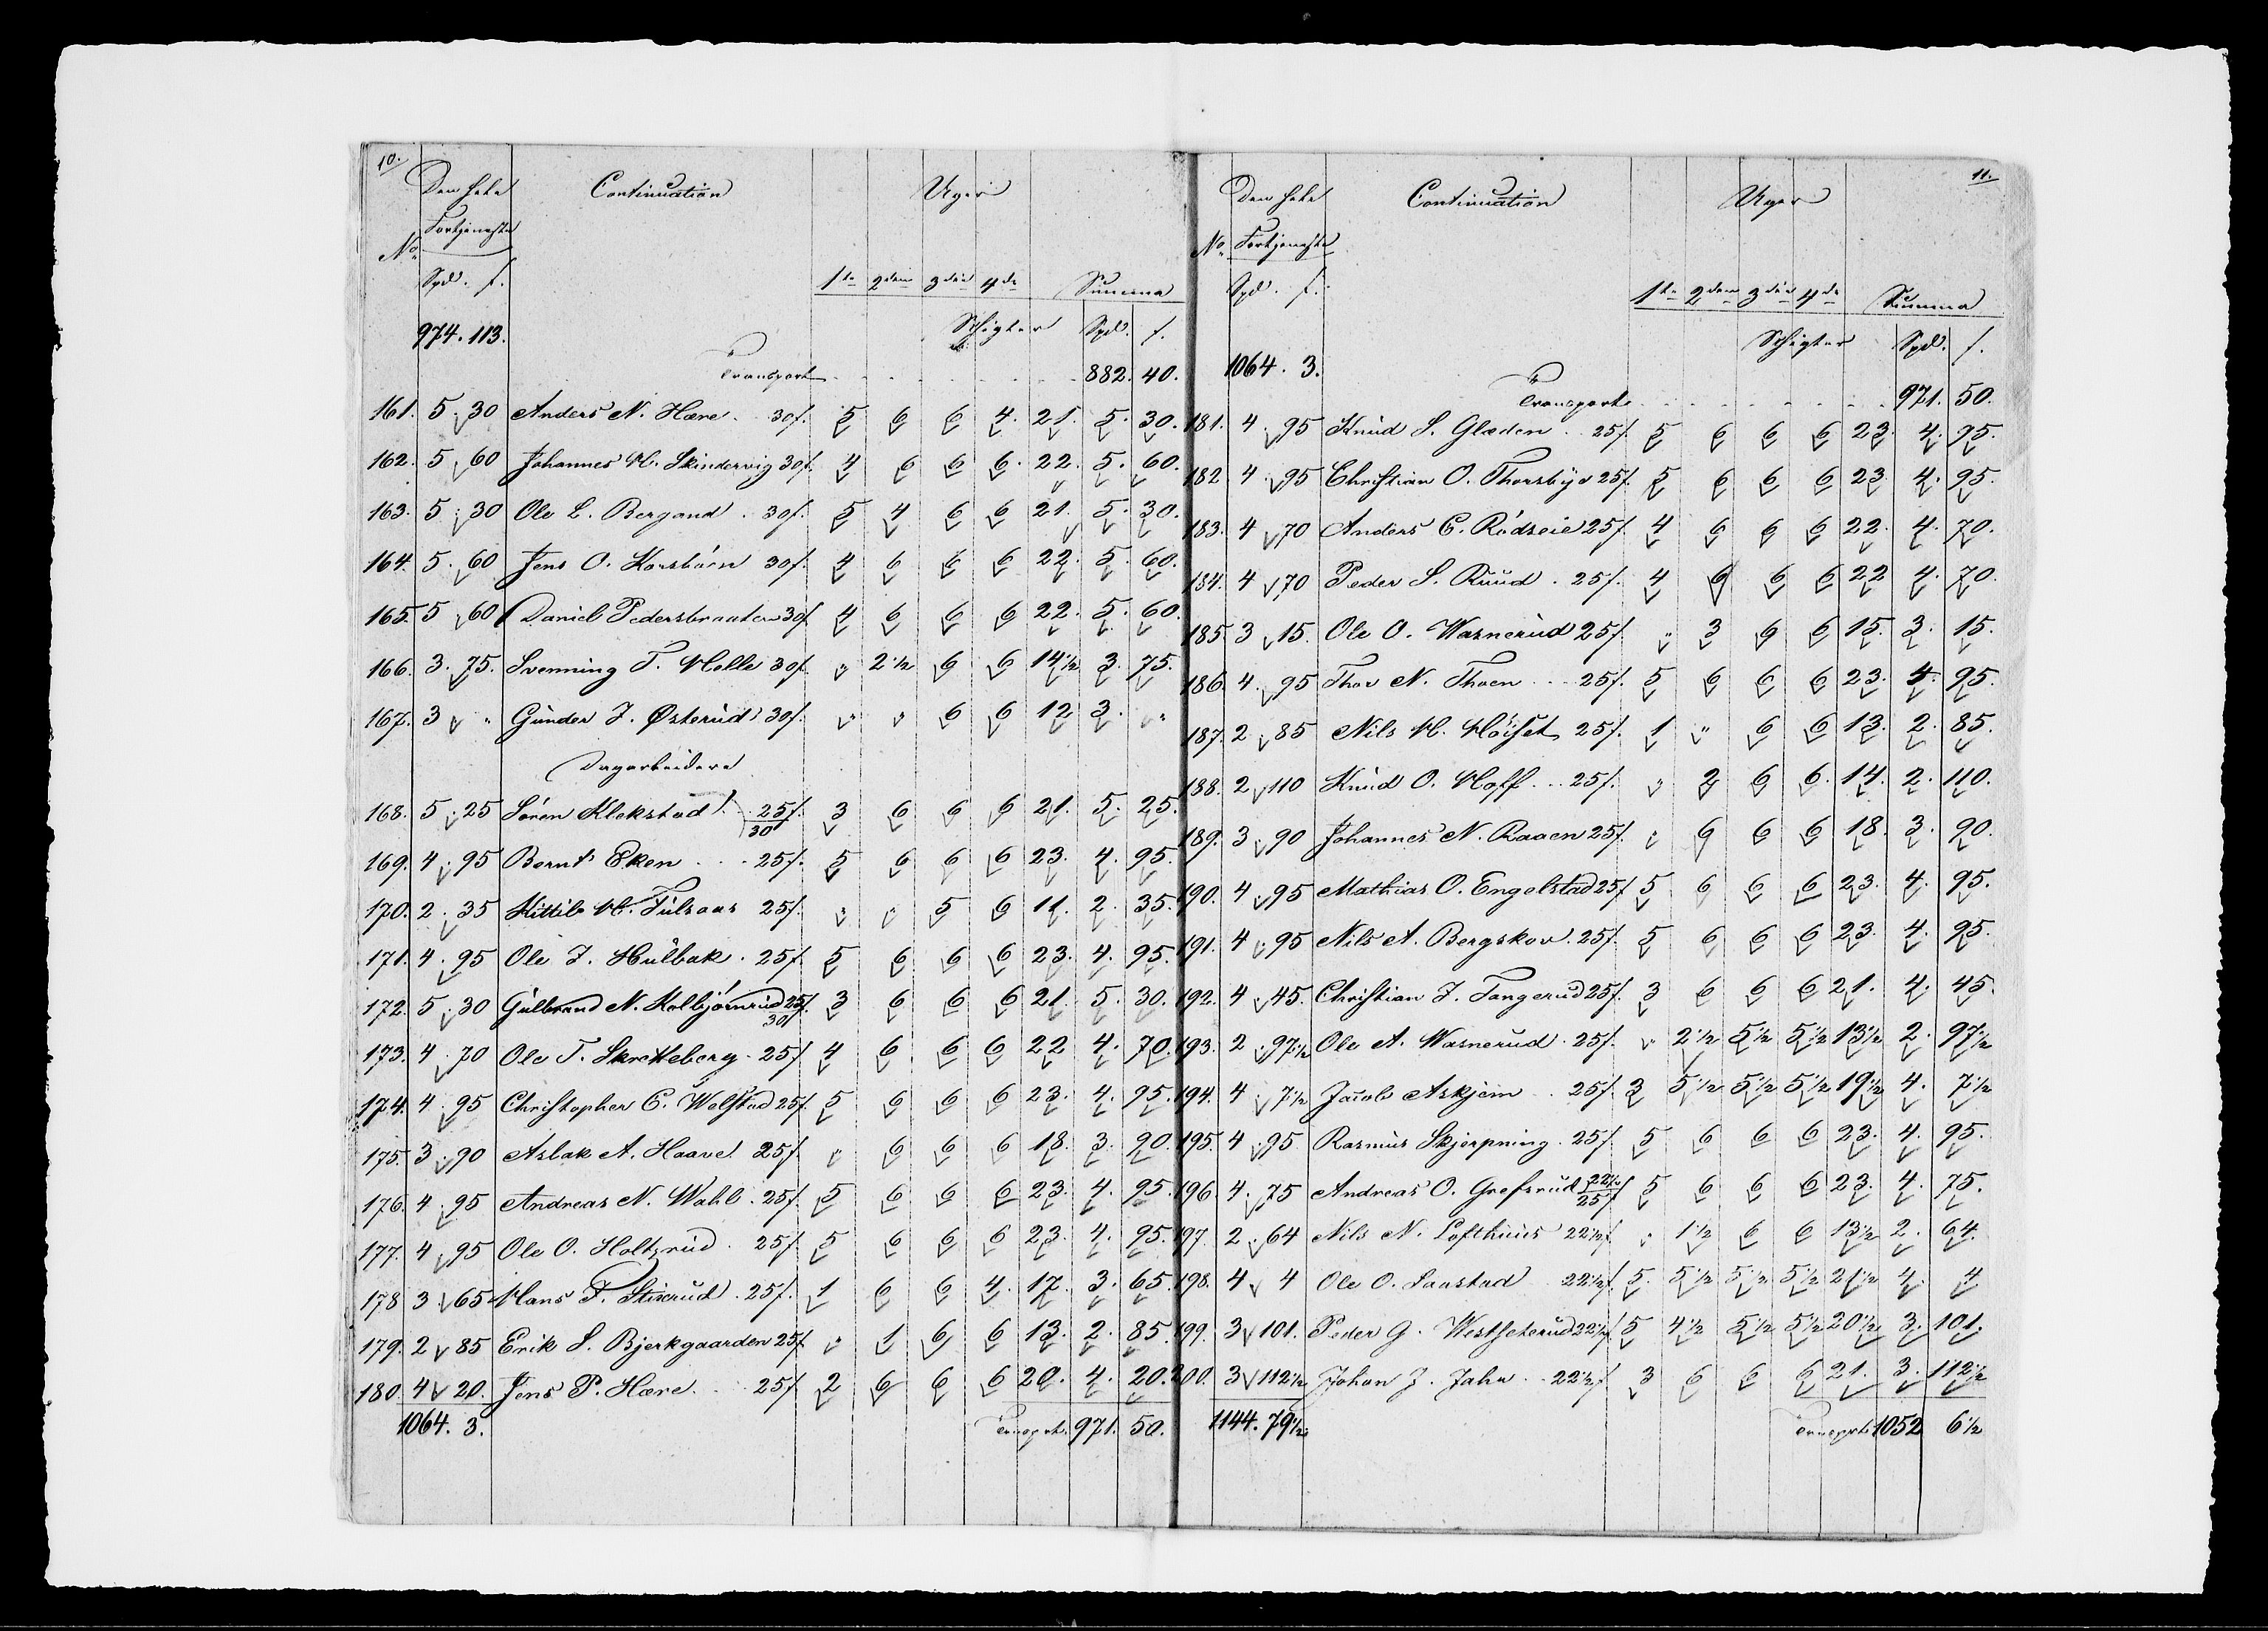 10.
Den hele Continuation Uger
Fortjeneste
No
Spd. s. 1te 2den 3die 4de Summa
974. 113. Schigter Spd. s.
Transport 882. 40.
161. 5. 30 Anders N. Hære. 30s. 5 6 6 4. 21. 5. 30.
162. 5 60 Johannes H. Skindervig 30s. 4 6 6 6. 22. 5. 60.
163. 5. 30 Ole L. Bergand. 30s. 5 4 6 6 21. 5. 30.
164. 5. 60 Jens O. Korsbøen 30s. 4 6 6 6 22. 5. 60.
165. 5 60 Daniel Pedersbraaten 30s. 4 6 6 6 22. 5. 60.
166. 3. 75. Svenning T. Molle 30s. " 2 1/2 6 6 14 1/2 3. 75.
167. 3 " Gunder J. Østerud 30s. " " 6 6 12 3. "
Dagarbeidere
168. 5. 25 Sören Klekstad 25s. 30 3 6 6 6 21. 5. 25.
169. 4. 95 Bernt Eken 25s. 5 6 6 6 23. 4. 95.
170. 2. 35 Kittil H. Tulsaas 25s. " " 5 6 11. 2. 35.
171. 4. 95 Ole J. Hulbak. 25s. 5 6 6 6 23. 4. 95.
172. 5. 30 Gulbrand N. Kolbjørnrud 25s. 30 3 6 6 6 21. 5. 30.
173. 4. 70 Ole T. Skretteberg. 25s. 4 6 6 6 22 4. 70.
174. 4. 95 Christopher C. Wolstad 25s. 5 6 6 6 23. 4. 95.
175. 3. 90 Aslak A. Haave 25s. " 6 6 6 18. 3. 90.
176. 4. 95 Andreas N. Wahl. 25s. 5 6 6 6 23. 4. 95.
177. 4. 95 Ole O. Holtzrud. 25s. 5 6 6 6 23. 4. 95.
178 3 65 Hans T. Stixrud. 25s. 1 6 6 4. 17. 3. 65.
179. 2 85 Erik S. Bjerkgaarden 25s. " 1 6 6 13. 2. 85.
180. 4 20. Jens P. Hære. 25s. 2 6 6 6 20. 4. 20.
1064. 3. Trnsprt. 971. 50.
11.
Den hele Continuation Uger
No Fortjeneste
Spd. s. 1te 2den 3die 4de Summa
Schigter Spd. s.
1064. 3.
Transport 971. 50.
181. 4. 95 Knud S. Glæden. 25s. 5 6 6 6 23. 4. 95.
182 4. 95 Christian O. Thorsbye 25s. 5 6 6 6 23. 4. 95.
183. 4 70 Anders C. Rödseie 25s. 4 6 6 6 22. 4. 70.
184. 4 70 Peder S. Ruud. 25s. 4 6 6 6 22 4. 70.
185. 3 15. Ole O. Warnerud 25s. " 3 6 6 15. 3. 15.
186. 4. 95 Thor N. Thoen 25s. 5 6 6 6 23. 4. 95.
187. 2 85 Nils H. Höiset 25s. 1 " 6 6 13. 2. 85.
188. 2 110 Knud O. Hoff. 25s. " 2 6 6. 14. 2. 110.
189. 3. 90 Johannes N. Raaen 25s. " 6 6 6 18. 3. 90.
190. 4 95 Mathias O. Engelstad 25s. 5 6 6 6 23. 4. 95.
191. 4. 95 Nils A. Bergskov. 25s. 5 6 6 6 23. 4. 95.
192. 4 45. Christian J. Tangerud 25s. 3 6 6 6 21. 4. 45.
193. 2. 97 1/2 Ole A. Warnerud. 25s. " 2 1/2 5 1/2 5 1/2 13 1/2 2. 97 1/2
194. 4. 7 1/2 Jacob Askjem 25s. 3 5 1/2 5 1/2 5 1/2 19 1/2 4. 7 1/2
195. 4. 95 Rasmus Skjerpning. 25s. 5 6 6 6 23. 4. 95.
196 4. 75 Andreas O. Grefsrud 22 1/2 25s. 5 6 6 6 23. 4. 75.
197. 2. 64 Nils N. Lofthuus 22 1/2s. " 1 1/2 6 6 13 1/2 2. 64.
198. 4 4 Ole O. Laastad 22 1/2s. 5. 5 1/2 5 1/2 5 1/2 21 1/2 4. 4
199. 3 101. Peder G. Westseterud 22 1/2s. 5 4 1/2 5 1/2 5 1/2 20 1/2 3. 101.
200. 3 112 1/2 Johan J. Jahr. 22 1/2s. 3 6 6 6 21. 3. 112 1/2
1144. 79 1/2 Trnsprt. 1052 6 1/2